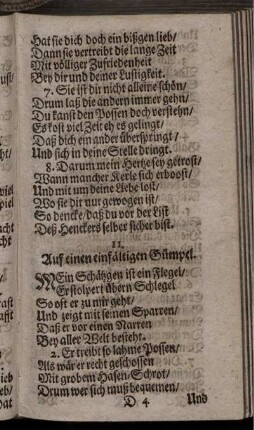 Hat sie dich doch ein bißgen lieb/
Dann sie vertreibt die lange Zeit
Mit völliger Zufriedenheit
Bey dir und deiner Lustigkeit.
7. Sie ist dir nicht alleine schön/
Drum laß die andern immer gehn/
Du kanst den Possen doch verstehn/
Es kost viel Zeit eh es gelingt/
Daß dich ein ander überspringt/
Und sich in deine Stelle dringt.
8. Darum mein Hertze sey getrost/
Wann mancher Kerle sich erboost/
Und mit um deine Liebe lost/
Wo sie dir nur gewogen ist/
So dencke/ daß du vor der List
Deß Henckers selber sicher bist.
11.
Auf einen einfältigen Gümpel.
MEin Schätzgen ist ein Flegel/
Er stolpert übern Schlegel
So oft er zu mir geht/
Und zeigt mit seinen Sparren/
Daß er vor einen Narren
Bey aller Welt besteht.
2. Er treibt so lahme Possen/
Als wär er recht geschossen
Mit grobem Hasen-Schrot/
Drum wer sich muß bequemen/
D 4 Und